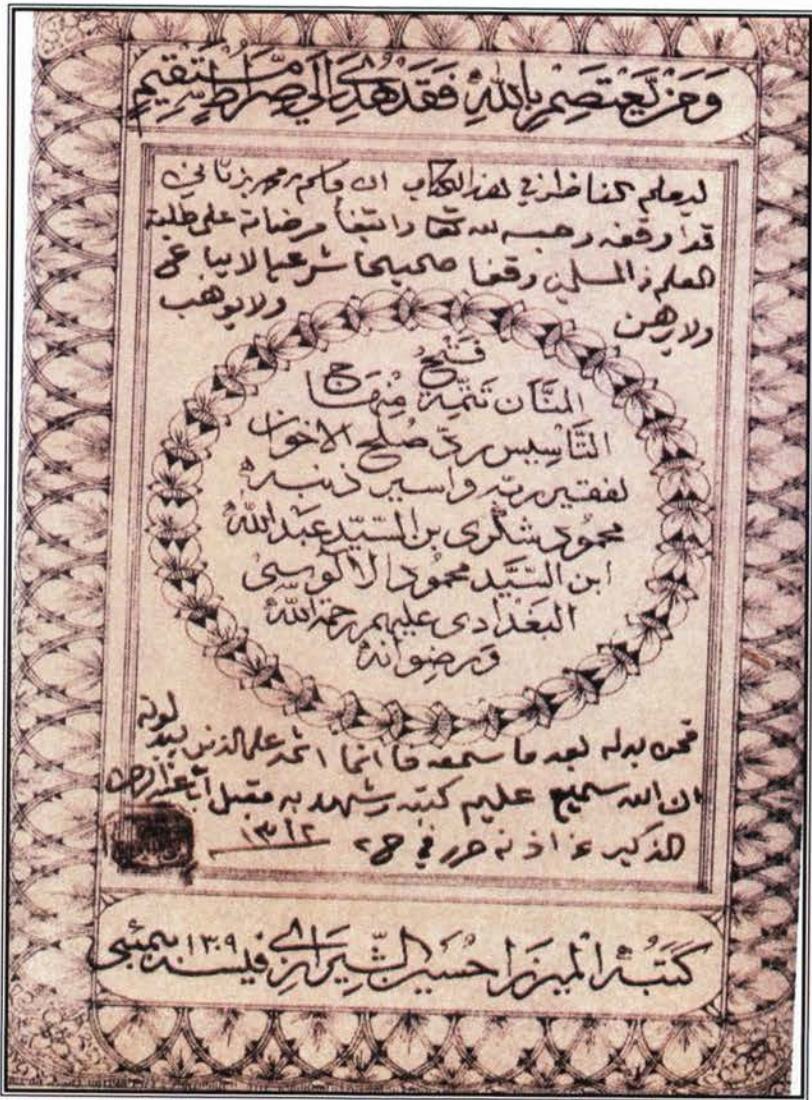 وَمَنْ يَّعْتَصِمْ بِاللهِ فَقَدْ هُدِىَ اِلٰى صِرَاطٍ مُّسْتَقِيْمٍ
ليعلم الناظر في هذا الكتاب ان قاسم بن محمد بن ثاني
قد اوقفه وحبسه لله تعا وابتغا مرضاته على طلبة
العلم من المسلمين وقفا صحيحا شرعيا لا يباع
ولا يرهن ولا يوهب
فتح
المنَّان تتمَّة منهاج
التَّأسيس ردّ صلح الاخوان
لفقير ربّه واسير ذنبه
محمُود شكرى بن السّيّد عبد الله
ابن السَّيَّد محمُود الآلوسى
البغدادى عليهم رحمة الله
ورضوانه
فمن بدله بعد ما سمعه فانما اثمه على الذين يبدلونه
ان الله سميع عليم كتبه وشهد به مقبل
الذكير عن اذنه حرر في ١٣١٢
كَتَبَهُ الميرزا حسين الشّيرازى فى سنه ١٣٠٩ بمبئى